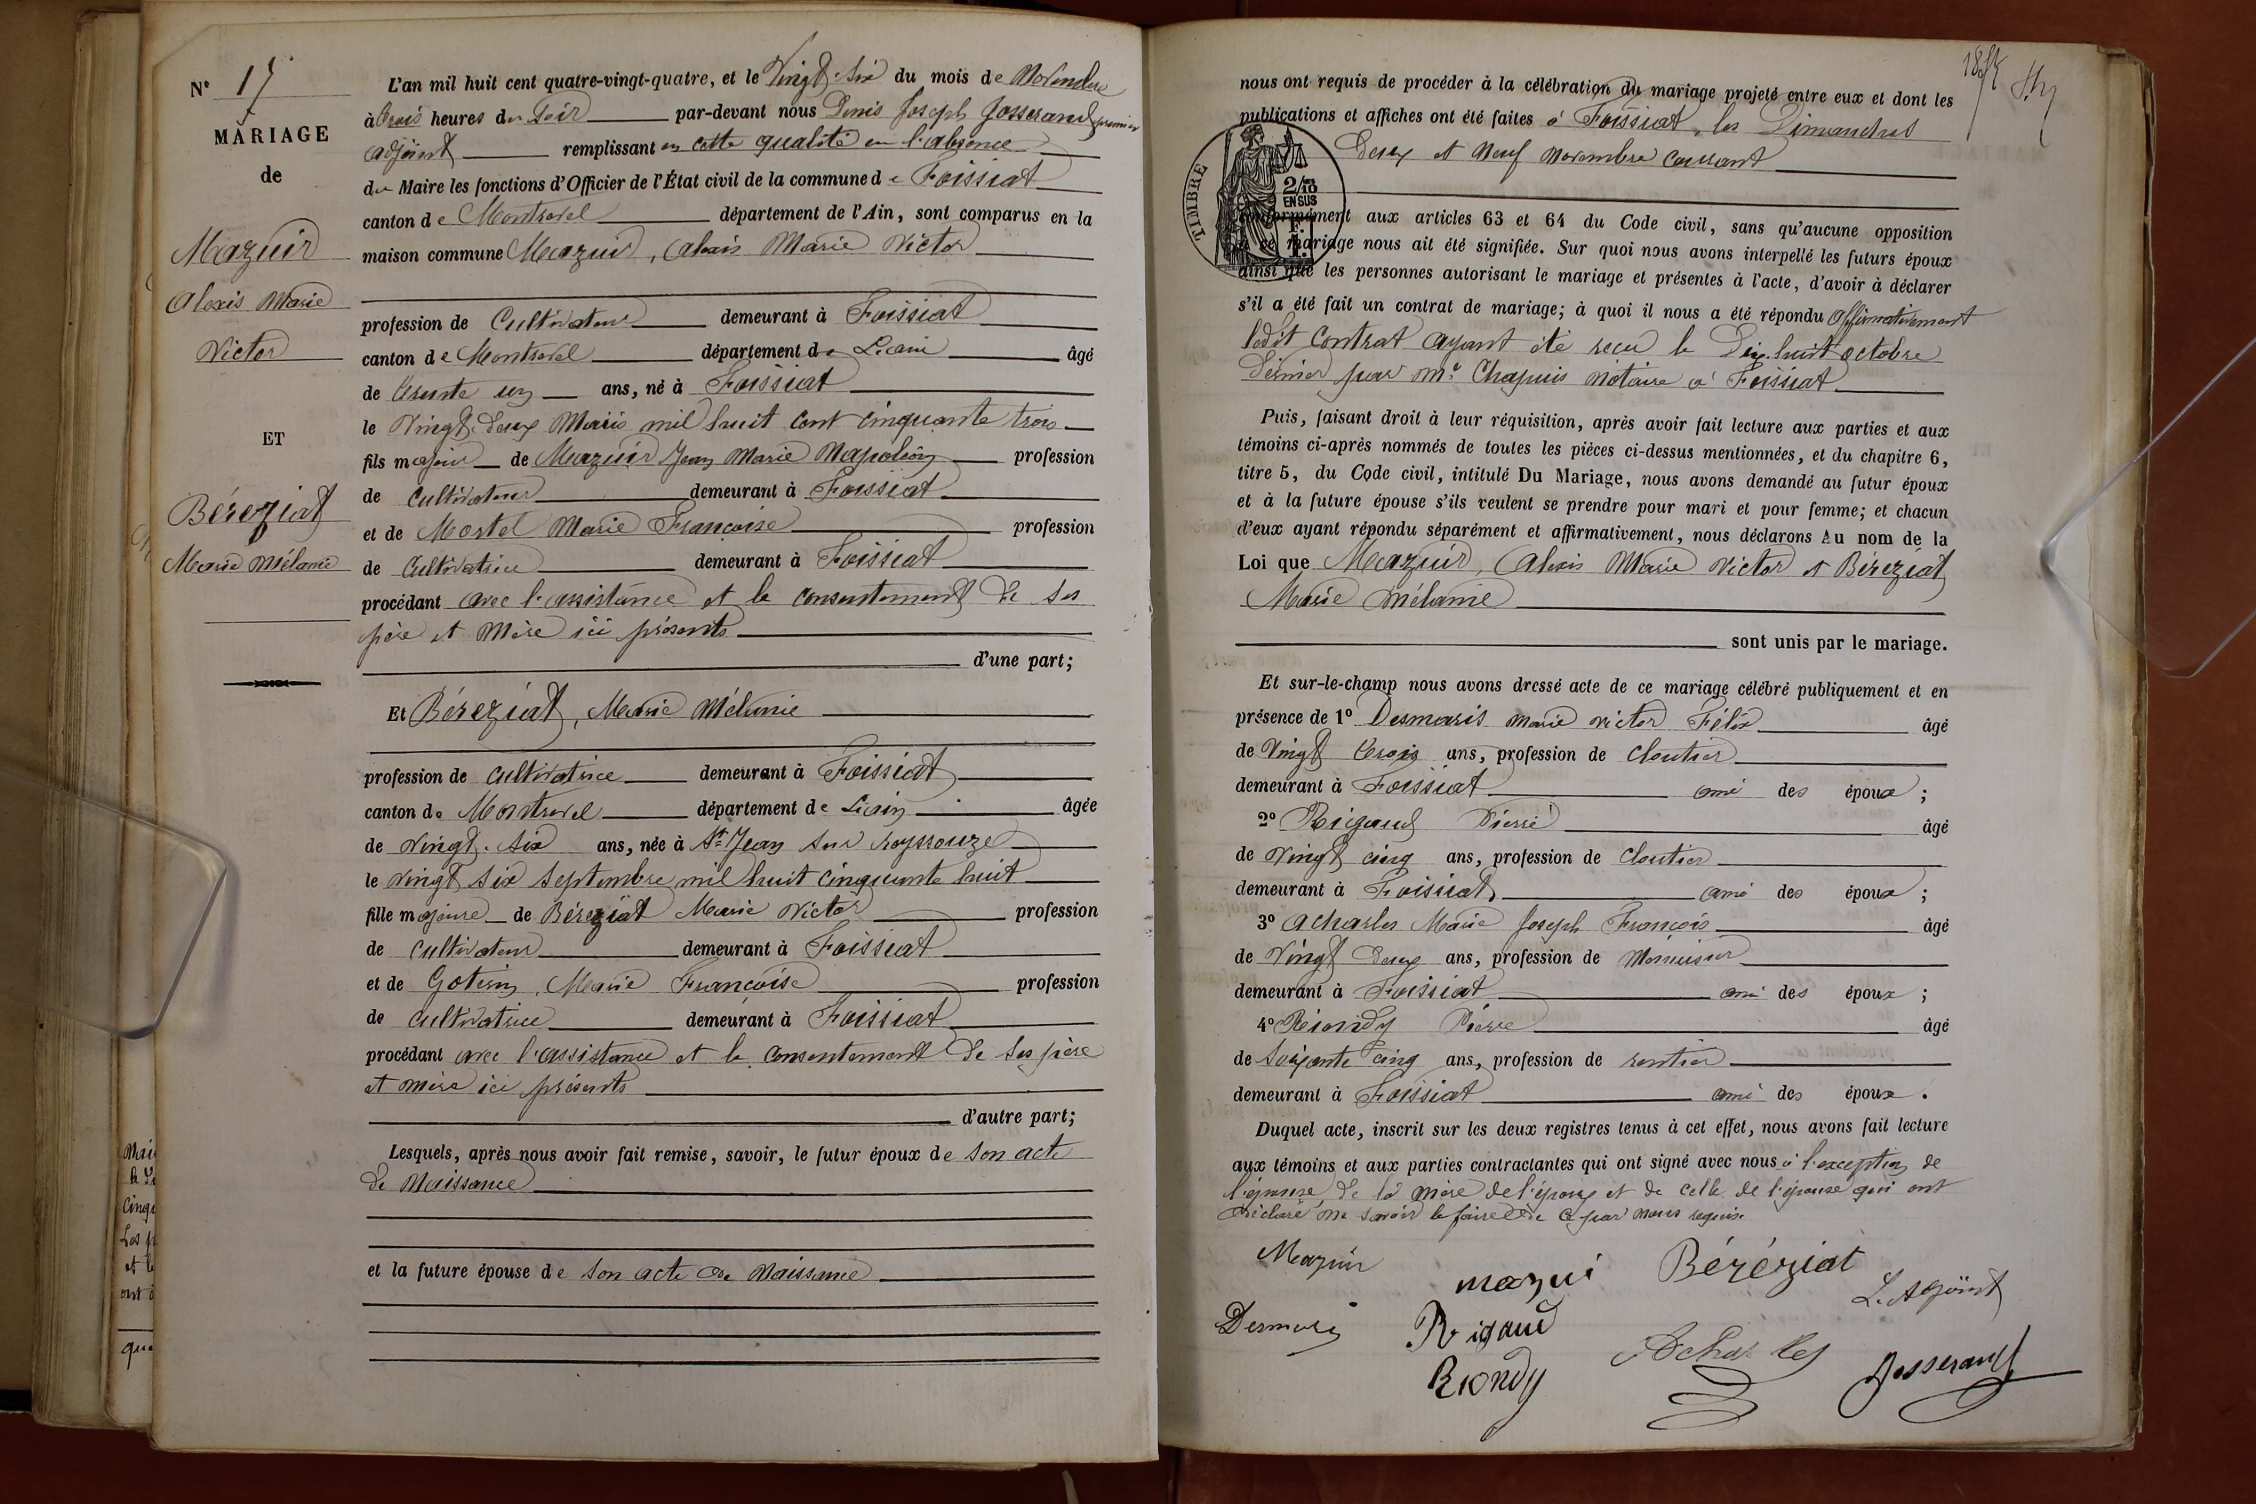 N° 17
MARIAGE
de
Mazuir
Alexis Marie
Victor
ET
Béreziat
Marie Mélanie
L'an mil huit cent quatre-vingt-quatre, et le Vingt-six du mois de Novembre
à trois heures du Soir par-devant nous Denis Joseph Josserand premier
adjoint remplissant en cette qualité en l'absence
du Maire les fonctions d'Officier de l'État civil de la commune de Foissiat
canton de Montrevel département de l'Ain, sont comparus en la
maison commune Mazuir, Alexis Marie Victor
profession de Cultivateur demeurant à Foissiat
canton de Montrevel département de L'ain âgé
de trente un ans, né à Foissiat
le Vingt-deux Mars mil huit cent cinquante trois
fils majeur de Mazuir Jean Marie Napoléon profession
de Cultivateur demeurant à Foissiat
et de Mortel Marie Françoise profession
de Cultivatrice demeurant à Foissiat
procédant avec l'assistance et le consentement de ses
père et mère ici présents
d'une part;
Et Béreziat, Marie Mélanie
profession de cultivatrice demeurant à Foissiat
canton de Montrevel département de L'ain âgée
de Vingt-six ans, née à St Jean sur Reyssouze
le vingt six septembre mil huit cinquante huit
fille majeure de Béreziat Marie Victor profession
de cultivateur demeurant à Foissiat
et de Gotin, Marie Françoise profession
de cultivatrice demeurant à Foissiat
procédant avec l'assistance et le consentement de ses père
et mère ici présents
d'autre part;
Lesquels, après nous avoir fait remise, savoir, le futur époux de son acte
de Naissance
et la future épouse de son acte de Naissance
nous ont requis de procéder à la célébration du mariage projeté entre eux et dont les
publications et affiches ont été faites à Foissiat, les Dimanches
Deux et Neuf novembre courant
TIMBRE
2/10
EN SUS
conformément aux articles 63 et 64 du Code civil, sans qu'aucune opposition
à ce mariage nous ait été signifiée. Sur quoi nous avons interpellé les futurs époux
ainsi que les personnes autorisant le mariage et présentes à l'acte, d'avoir à déclarer
s'il a été fait un contrat de mariage; à quoi il nous a été répondu affirmativement
ledit contrat ayant été reçu le Dix huit octobre
dernier par Me Chapuis notaire à Foissiat
Puis, faisant droit à leur réquisition, après avoir fait lecture aux parties et aux
témoins ci-après nommés de toutes les pièces ci-dessus mentionnées, et du chapitre 6,
titre 5, du Code civil, intitulé Du Mariage, nous avons demandé au futur époux
et à la future épouse s'ils veulent se prendre pour mari et pour femme; et chacun
d'eux ayant répondu séparément et affirmativement, nous déclarons Au nom de la
Loi que Mazuir, Alexis Marie Victor et Béreziat
Marie Mélanie
sont unis par le mariage.
Et sur-le-champ nous avons dressé acte de ce mariage célébré publiquement et en
présence de 1° Desmaris Marie Victor Félix âgé
de Vingt trois ans, profession de cloutier
demeurant à Foissiat ami des époux;
2° Rigaud Pierre âgé
de Vingt cinq ans, profession de cloutier
demeurant à Foissiat ami des époux;
3° Acharles Marie Joseph François âgé
de Vingt deux ans, profession de Menuisier
demeurant à Foissiat ami des époux;
4° Riondy Pierre âgé
de Soixante cinq ans, profession de rentier
demeurant à Foissiat ami des époux.
Duquel acte, inscrit sur les deux registres tenus à cet effet, nous avons fait lecture
aux témoins et aux parties contractantes qui ont signé avec nous à l'exception de
l'épouse, de la mère de l'époux et de celle de l'épouse qui ont
déclaré ne savoir le faire de ce par nous requis.
Mazuir
mazui
Béréziat
L'Adjoint
Desmaris
Rigaud
Acharles
Josserand
Riondy